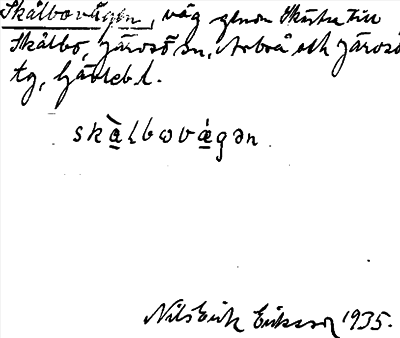 Skålbovägen, väg genom Skutskär till
Skålbo, Järvsö sn, Arbrå och Järvsö
tg, Gävlebl.
skàlbωvæ̀gən.
Nils Erik Eriksson 1935.